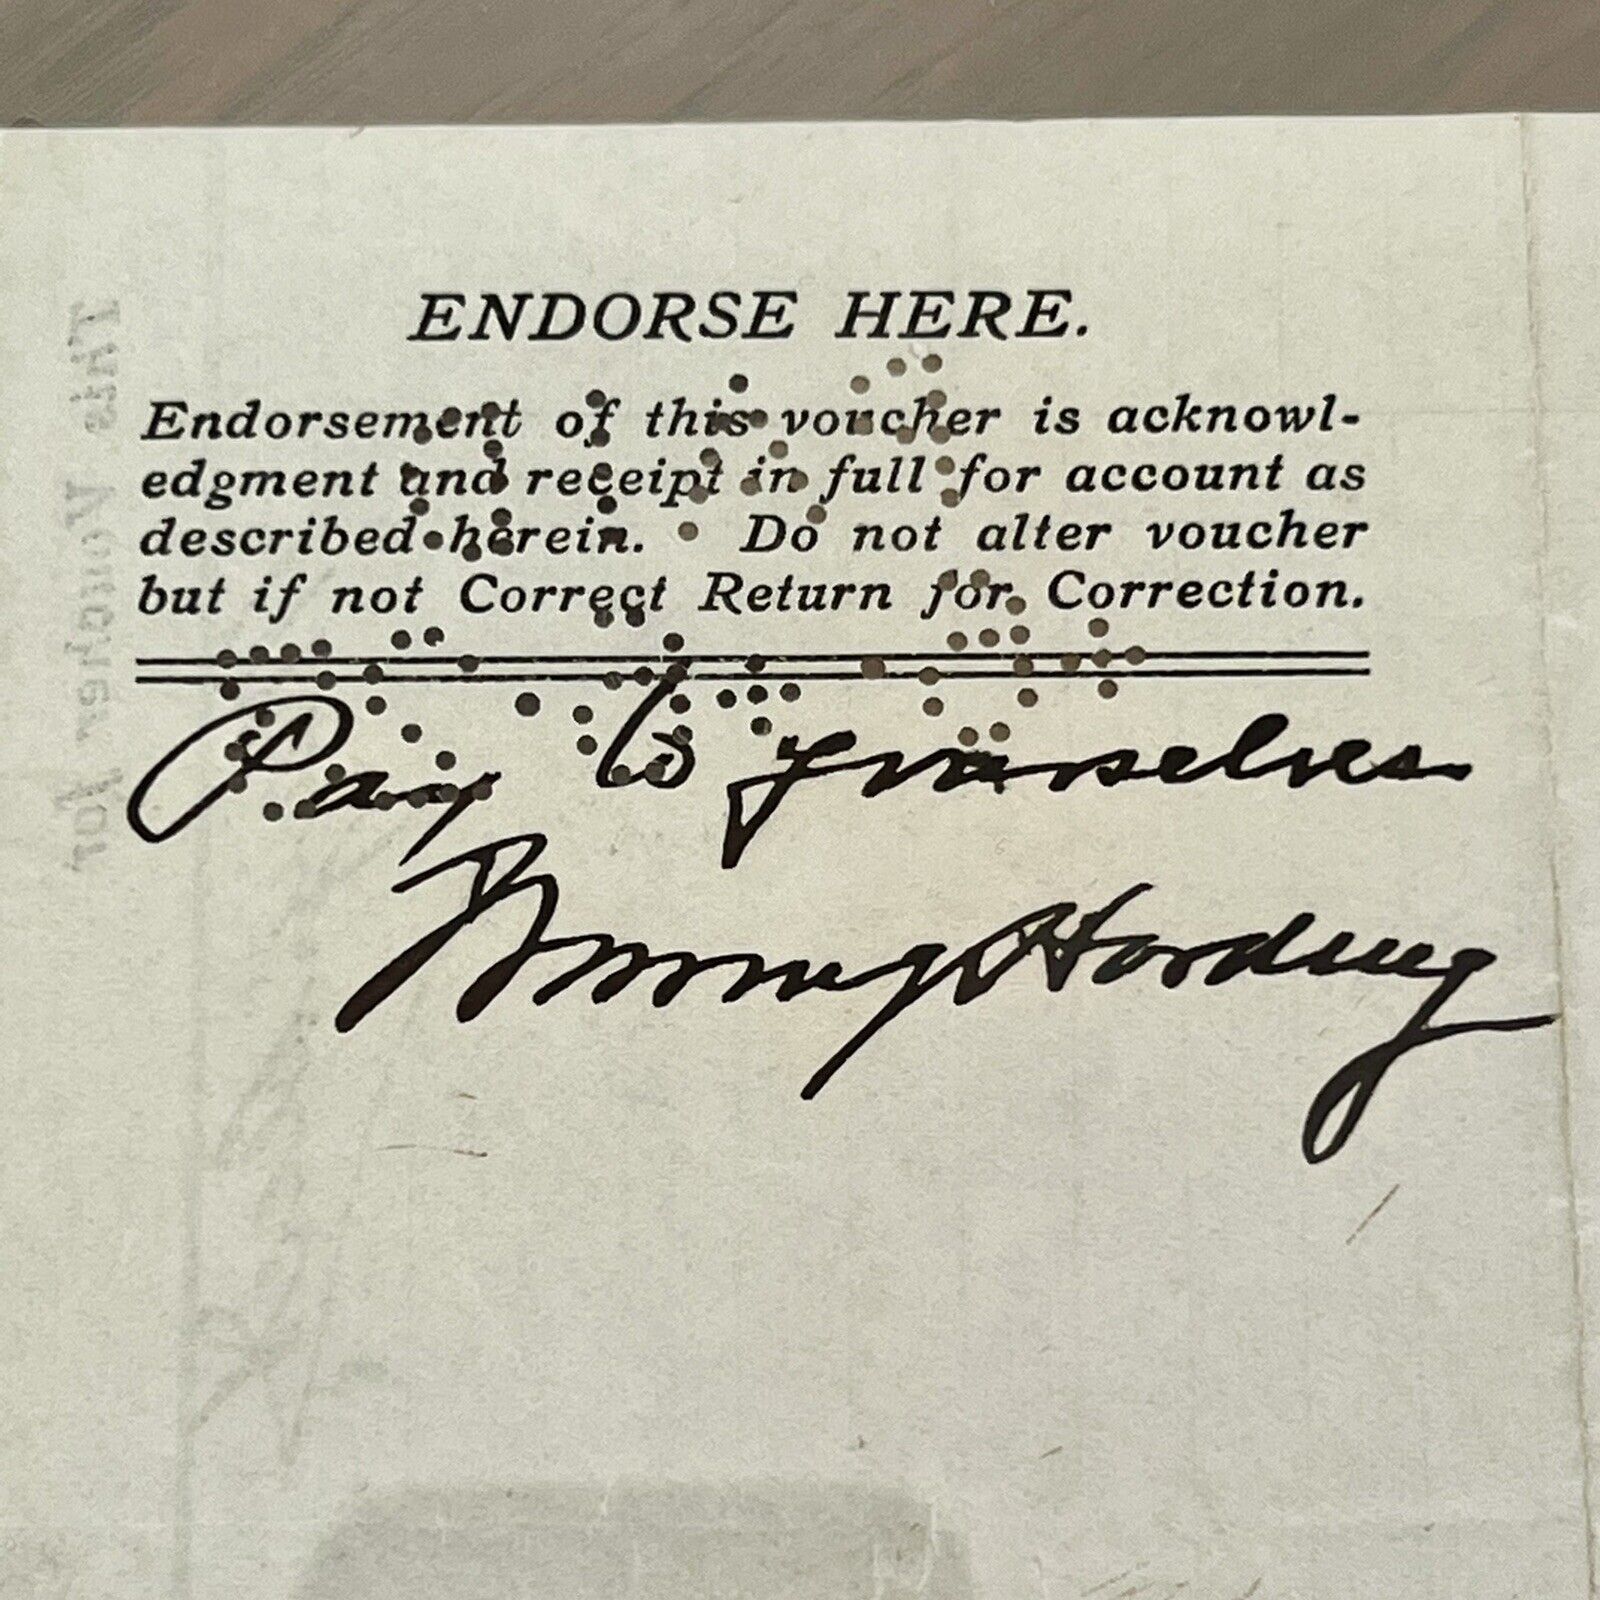 ENDORSE HERE.
Endorsement of this voucher is acknowl-
edgment and receipt in full for account as
described herein. Do not alter voucher
but if not Correct Return for Correction.
Pay to yourselves
Warren G Harding
This Voucher for